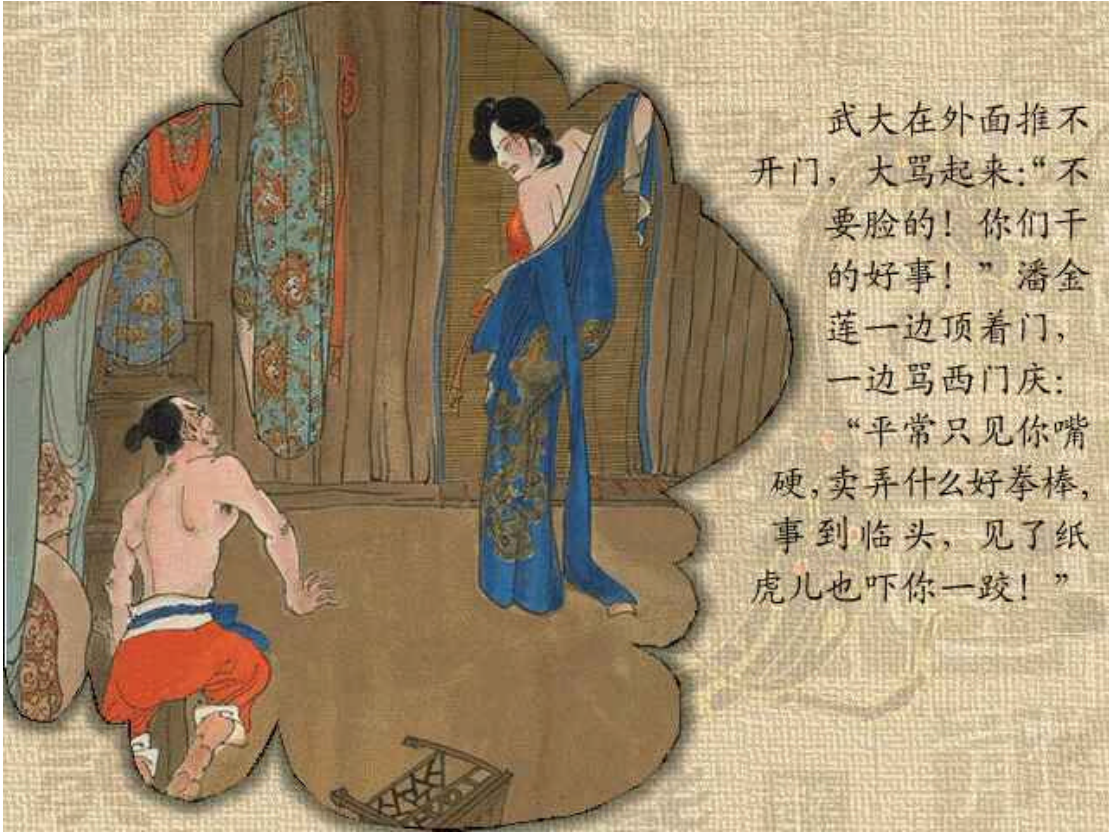 武大在外面推不
开门，大骂起来：“不
要脸的！你们干
的好事！”潘金
莲一边顶着门，
一边骂西门庆：
“平常只见你嘴
硬，卖弄什么好拳棒，
事到临头，见了纸
虎儿也吓你一跤！”